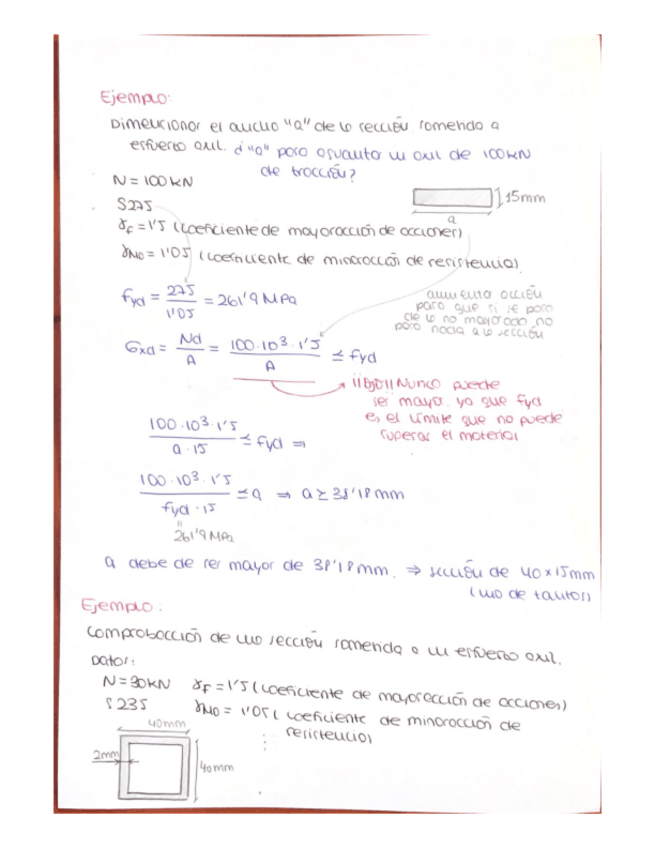 Ejemplo:
Dimensionar el ancho "a" de la sección sometida a
esfuerzo axil. ¿"a" para aguantar un axil de 100KN
de tracción?
N = 100KN
S275
15mm
a
γf = 1'5 (coeficiente de mayoracción de acciones)
γM0 = 1'05 (coeficiente de minoracción de resistencia)
fyd = 275/1'05 = 261'9 MPa
aumenta acción
para que si se pasa
de lo no mayorado no
pase nada a la sección
σxd = Nd/A = 100·10³·1'5/A ≤ fyd
¡¡Ojo!! Nunca puede
ser mayor, ya que fyd
es el límite que no puede
superar el material
100·10³·1'5/a·15 ≤ fyd ⇒
100·10³·1'5/fyd·15 ≤ a ⇒ a ≥ 38'18mm
"
261'9 MPa
a debe de ser mayor de 38'18mm. ⇒ sección de 40x15mm
(uno de tantos)
Ejemplo:
Comprobacción de una sección sometida a un esfuerzo axil.
Datos:
N = 30KN γf = 1'5 (coeficiente de mayoracción de acciones)
S235 γM0 = 1'05 (coeficiente de minoracción de
resistencia)
40mm
2mm
40mm